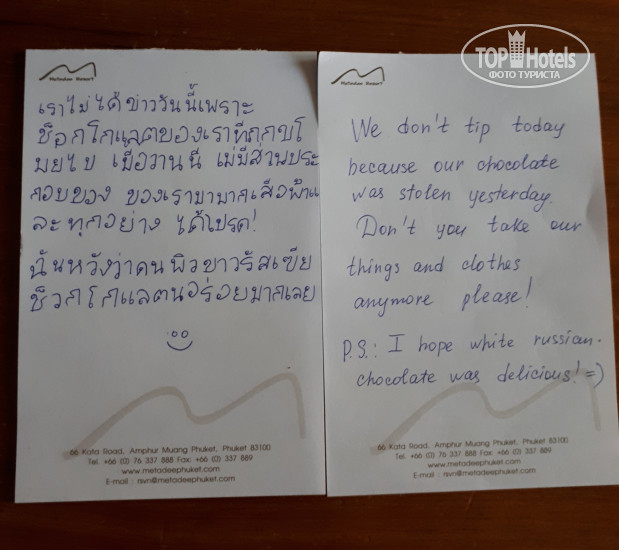 TOP Hotels
ФОТО ТУРИСТА
Metadee Resort
เราไม่ได้ข่าววันนี้เพราะ
ช็อกโกแลตของเราที่ถูกขโ
มยไป เมื่อวานนี้ เม่มีส่วนประ
กอบของ ของเรามามากเสื้อผ้าแ
ละทุกอย่าง ได้โปรด!
ฉันหวังว่าคนผิวขาวรัสเซีย
ช็วกโกแลตนอร่อยมากเลย
66 Kata Road, Amphur Muang Phuket, Phuket 83100
Tel. +66 (0) 76 337 888 Fax: +66 (0) 337 889
www.metadeephuket.com
E-mail : rsvn@metadeephuket.com
Metadee Resort
We don't tip today
because our chocolate
was stolen yesterday.
Don't you take our
things and clothes
anymore please!
P.S.: I hope white russian
chocolate was delicious! =)
66 Kata Road, Amphur Muang Phuket, Phuket 83100
Tel. +66 (0) 76 337 888 Fax: +66 (0) 337 889
www.metadeephuket.com
E-mail : rsvn@metadeephuket.com